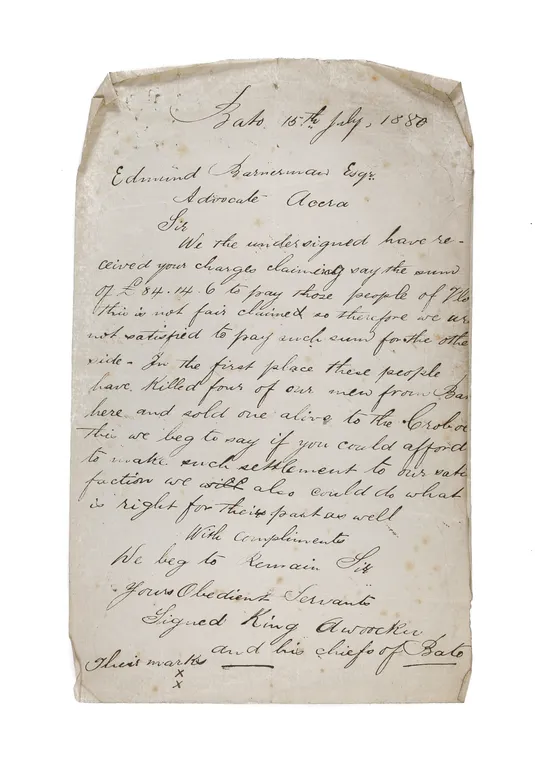 Bato 15th July, 1880
Edmund Bannerman Esqr.
Advocate Accra
Sir
We the undersigned have re-
ceived your charges claiming say the sum
of £84.14.6 to pay those people of Flo
this is not fair claimed so therefore we are
not satisfied to pay such sum for the othe
side - In the first place these people
have killed four of our men from Ba
here and sold one alive to the Croboe
this we beg to say if you could afford
to make such settlement to our satis
faction we will also could do what
is right for their part as well
With compliments
We beg to Remain Sir
Yours Obedient Servants
Signed King Awoorku
and his chiefs of Bato
Their marks
x
x